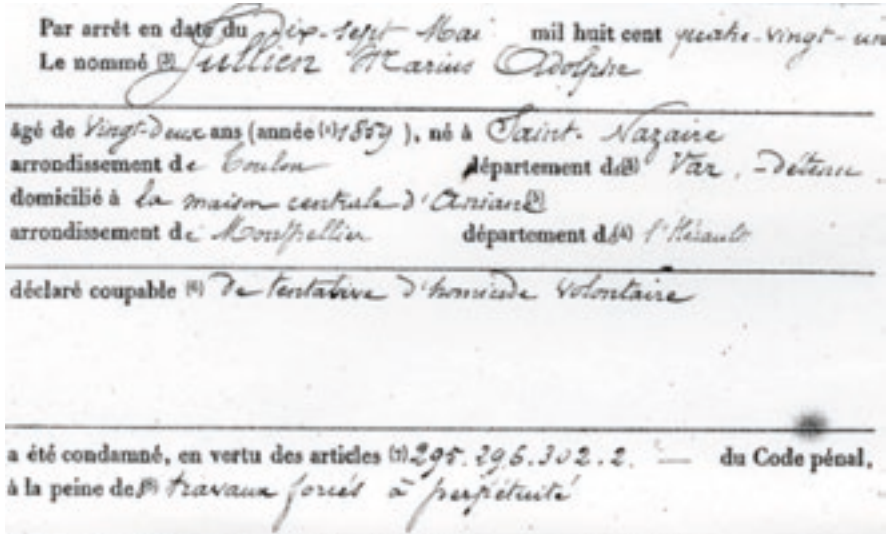 Par arrêt en date du dix-sept Mai mil huit cent quatre-vingt-un
Le nommé (3) Jullien Marius Adolphe
âgé de Vingt-deux ans (année (4) 1859), né à Saint-Nazaire
arrondissement de Toulon département du (5) Var, - détenu
domicilié à la maison centrale d'Aniane
arrondissement de Montpellier département de (4) l'Hérault
déclaré coupable (6) De tentative d'homicide volontaire
a été condamné, en vertu des articles (7) 295. 296. 302. 2. — du Code pénal,
à la peine de (8) travaux forcés à perpétuité